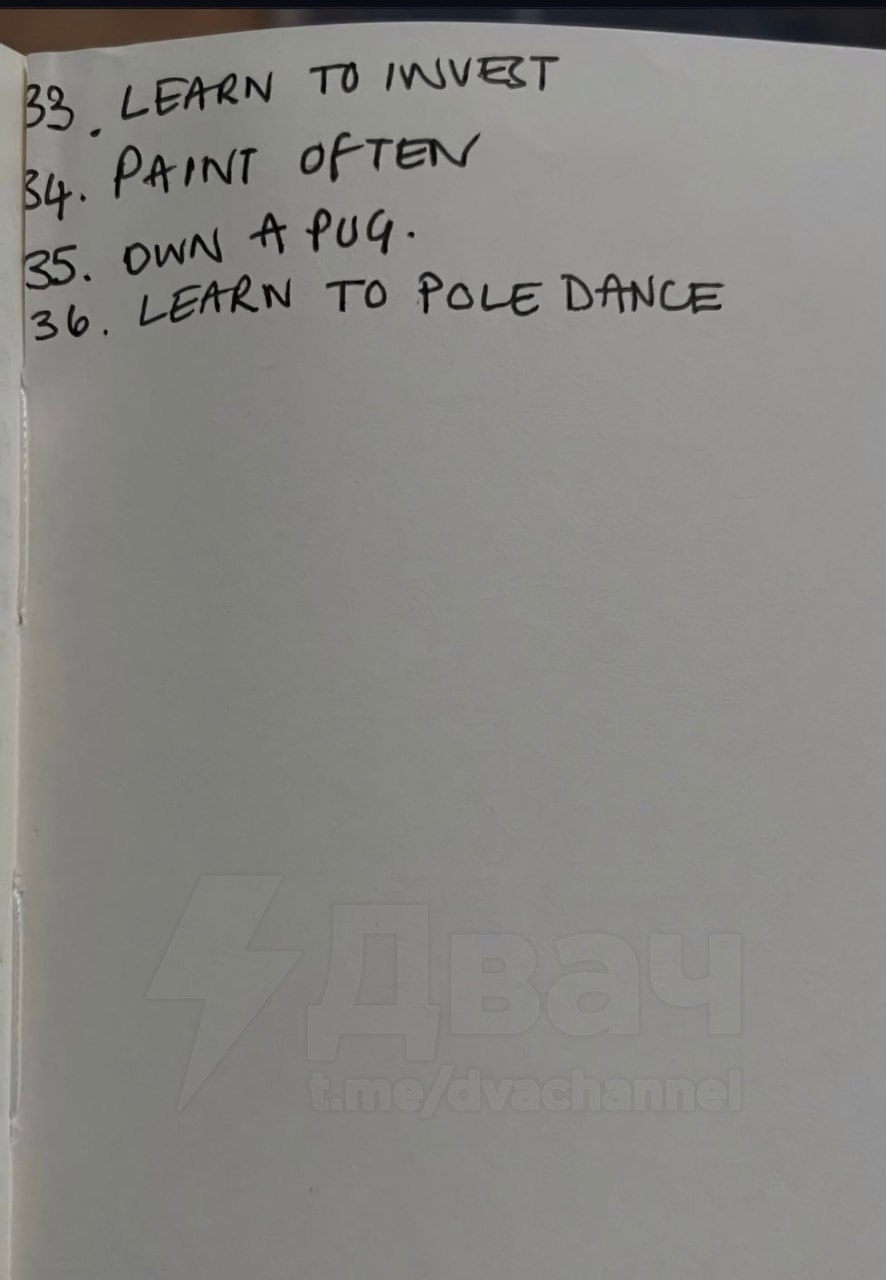 33. LEARN TO INVEST
34. PAINT OFTEN
35. OWN A PUG.
36. LEARN TO POLE DANCE
Двач
t.me/dvachannel